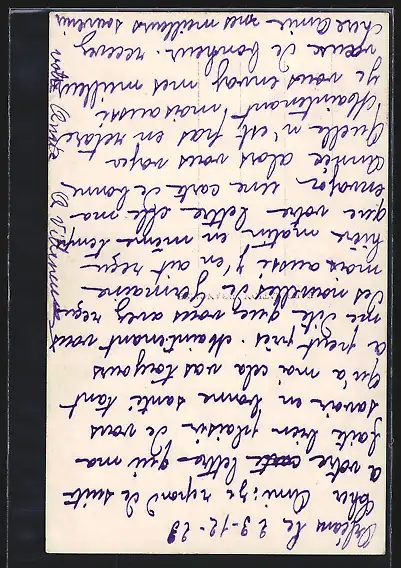 Orléans le 23-12-29
Chère Amie je repond de suite
a votre carte lettre qui ma
fait bien plaisir de vous
savoir en bonne santé tant
qu'a moi cela vas toujours
a peut près. Maintenant vous
me dite que vous avez reçu
des nouvelles de Germaine
mais aussi j'en ait reçu
hier matin en même temps
que votre lettre elle ma
envoyer une carte de bonne
Année alors vous voyer
Quelle n'est pas en retard
Maintenant mois aussi
je vous envoy mes meilleurs
vœux de bonheur. recever
chère Amie mes meilleurs souvenir
votre Amie